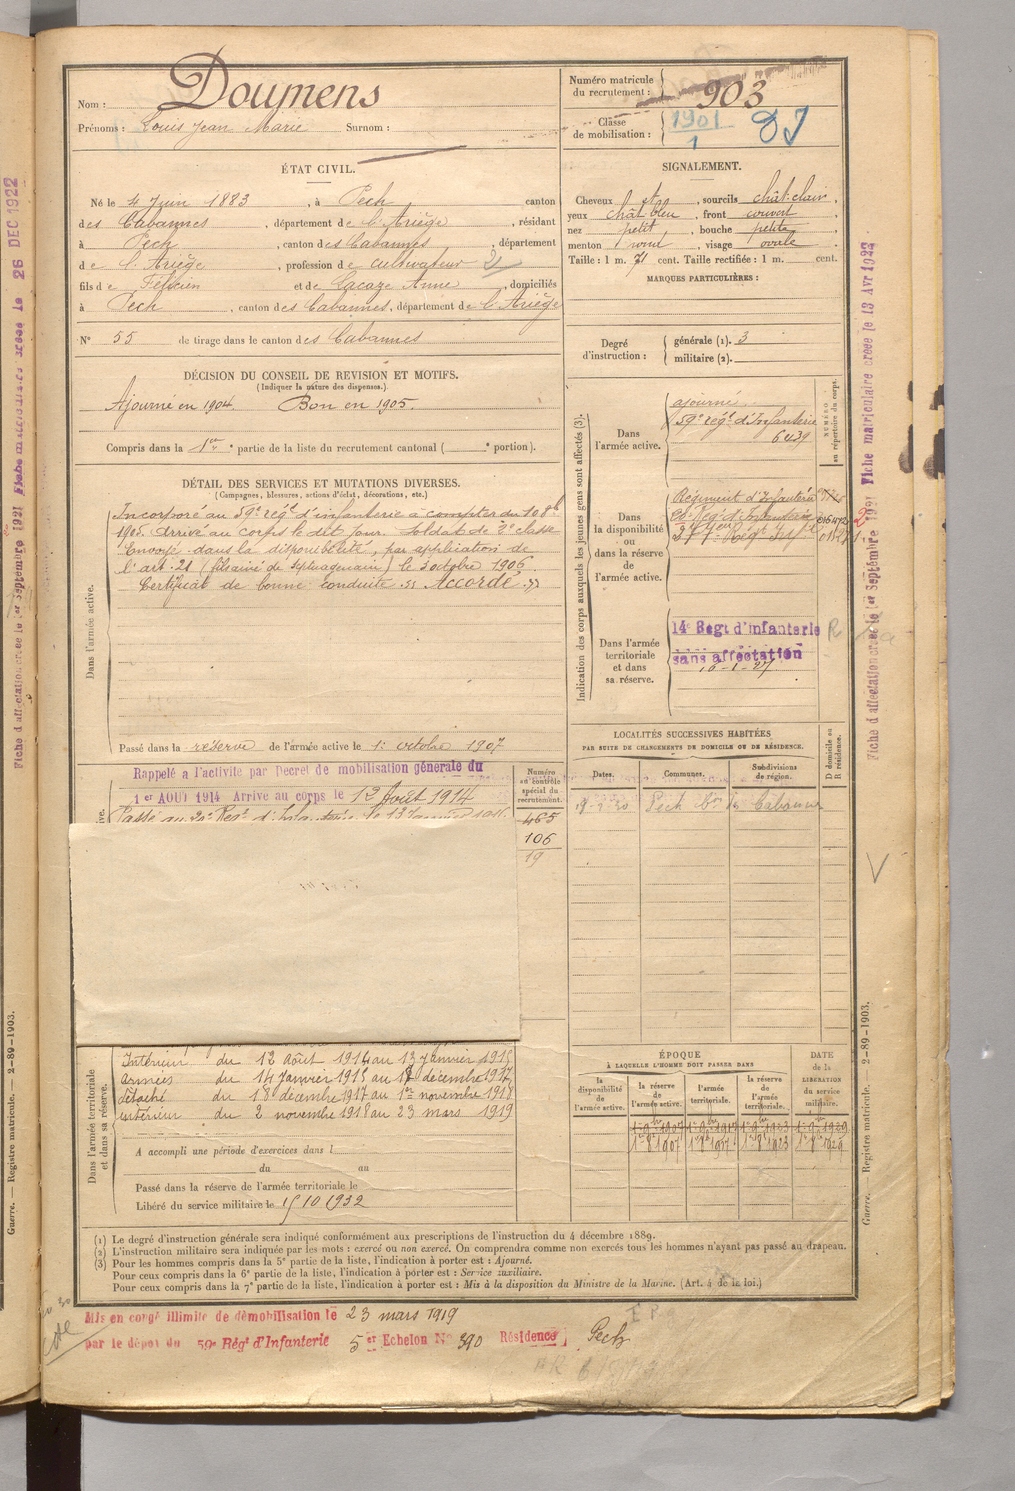 Nom : Doumens
Prénoms : Louis Jean Marie Surnom :
Numéro matricule
du recrutement : 903
Classe
de mobilisation : 1901
1
ÉTAT CIVIL.
Né le 4 Juin 1883, à Pech canton
des Cabannes, département de l'Ariège, résidant
à Pech, canton des Cabannes, département
de l'Ariège, profession de cultivateur
fils de Félicien et de Lacaze Anne, domiciliés
à Pech, canton des Cabannes, département de l'Ariège
N° 55 de tirage dans le canton des Cabannes
SIGNALEMENT.
Cheveux et, sourcils chât. clair,
yeux chât bleu, front couvert,
nez petit, bouche petite,
menton rond, visage ovale,
Taille : 1 m. 71 cent. Taille rectifiée : 1 m. cent.
MARQUES PARTICULIÈRES :
Degré
d'instruction :
générale (1). 3
militaire (2).
DÉCISION DU CONSEIL DE REVISION ET MOTIFS.
(Indiquer la nature des dispenses.)
Ajourné en 1904. Bon en 1905.
Compris dans la 1re partie de la liste du recrutement cantonal ( e portion).
DÉTAIL DES SERVICES ET MUTATIONS DIVERSES.
(Campagnes, blessures, actions d'éclat, décorations, etc.)
Dans l'armée active.
Incorporé au 59e régt d'infanterie à compter du 10 8bre
1905. Arrivé au corps le dit jour. Soldat de 2e classe
Envoyé dans la disponibilité, par application de
l'art. 21 (fils aîné de septuagénaire) le 3 octobre 1906.
Certificat de bonne conduite "Accordé"
Passé dans la réserve de l'armée active le 1er octobre 1907
Indication des corps auxquels les jeunes gens sont affectés (3).
NUMÉRO
au répertoire du corps.
Dans
l'armée active.
ajourné
59e régt d'Infanterie
6439
Dans
la disponibilité
ou
dans la réserve
de
l'armée active.
Régiment d'Infanterie
Dans l'armée
territoriale
et dans
sa réserve.
14e Régt d'infanterie
sans affectation
LOCALITÉS SUCCESSIVES HABITÉES
PAR SUITE DE CHANGEMENTS DE DOMICILE OU DE RÉSIDENCE.
Dates. Communes. Subdivisions
de région.
D domicile ou
R résidence.
Pech
Rappelé à l'activité par Décret de mobilisation générale du
1er AOUT 1914 Arrivé au corps le 12 Août 1914
Numéro
au contrôle
spécial du
recrutement.
465
106
19
Dans l'armée territoriale
et dans sa réserve.
Intérieur du 12 août 1914 au 13 Janvier 1915
Armées du 14 Janvier 1915 au 17 décembre 1917
détaché du 18 décembre 1917 au 1er novembre 1918
intérieur du 2 novembre 1918 au 23 mars 1919
A accompli une période d'exercices dans l
du au
Passé dans la réserve de l'armée territoriale le
Libéré du service militaire le 15 10 1932
ÉPOQUE
À LAQUELLE L'HOMME DOIT PASSER DANS
la
disponibilité
de
l'armée active.
la réserve
de
l'armée active.
l'armée
territoriale.
la réserve
de
l'armée
territoriale.
DATE
de la
LIBÉRATION
du service
militaire.
(1) Le degré d'instruction générale sera indiqué conformément aux prescriptions de l'instruction du 4 décembre 1889.
(2) L'instruction militaire sera indiquée par les mots : exercé ou non exercé. On comprendra comme non exercés tous les hommes n'ayant pas passé au drapeau.
(3) Pour les hommes compris dans la 5e partie de la liste, l'indication à porter est : Ajourné.
Pour ceux compris dans la 6e partie de la liste, l'indication à porter est : Service auxiliaire.
Pour ceux compris dans la 7e partie de la liste, l'indication à porter est : Mis à la disposition du Ministre de la Marine. (Art. 4 de la loi.)
Mis en congé illimité de démobilisation le 23 mars 1919
par le dépôt du 59e Régt d'Infanterie 5er Echelon N° 390 Résidence Pech
Fiche matriculaire créée le 13 Avr 1922
Fiche d'affectation créée le 1er Septembre 1921
Guerre. — Registre matricule. — 2-89-1903.
26 DEC 1922
Fiche d'affectation créée le 1er Septembre 1921
Guerre. — Registre matricule. — 2-89-1903.